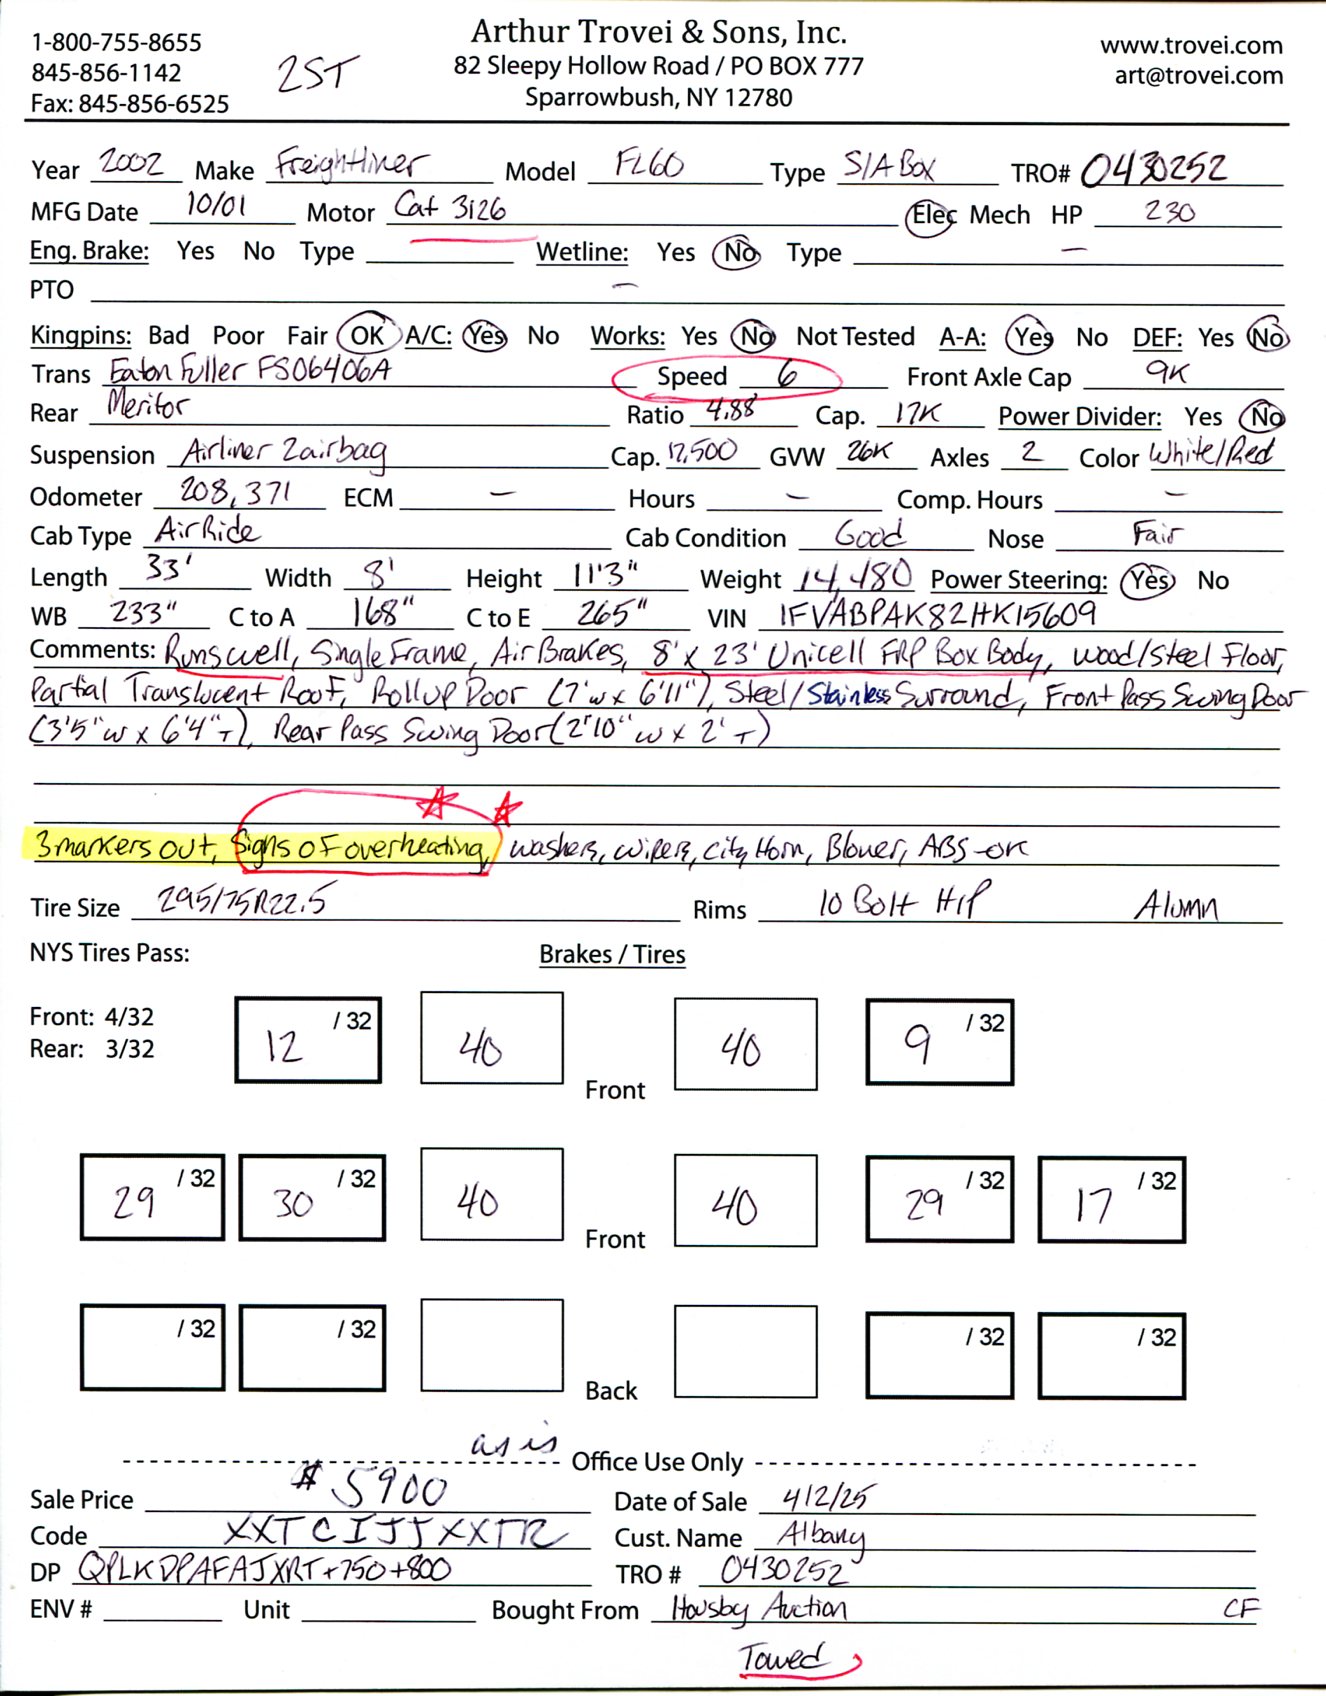 Arthur Trovei & Sons, Inc.
1-800-755-8655 82 Sleepy Hollow Road / PO BOX 777 www.trovei.com
845-856-1142 2ST art@trovei.com
Fax: 845-856-6525 Sparrowbush, NY 12780
Year 2002 Make Freightliner Model FL60 Type S/A Box TRO# 0430252
MFG Date 10/01 Motor Cat 3126 Elec Mech HP 230
Eng. Brake: Yes No Type Wetline: Yes No Type —
PTO —
Kingpins: Bad Poor Fair OK A/C: Yes No Works: Yes No Not Tested A-A: Yes No DEF: Yes No
Trans Eaton Fuller FSO6406A Speed 6 Front Axle Cap 9K
Rear Meritor Ratio 4.88 Cap. 17K Power Divider: Yes No
Suspension Airliner 2airbag Cap. 17,500 GVW 26K Axles 2 Color White/Red
Odometer 208,371 ECM — Hours — Comp. Hours —
Cab Type AirRide Cab Condition Good Nose Fair
Length 33' Width 8' Height 11'3" Weight 14,480 Power Steering: Yes No
WB 233" C to A 168" C to E 265" VIN 1FVABPAK82HK15609
Comments: Runs well, Single Frame, Air Brakes, 8' x 23' Unicell FRP Box Body, Wood/Steel Floor,
Partial Translucent Roof, Rollup Door (7'w x 6'11"), Steel/Stainless Surround, Front Pass Swing Door
(3'5"w x 6'4"T), Rear Pass Swing Door (2'10"w x 2'T)
3 markers out, Signs of overheating, washers, wipers, city Horn, Blower, ABS-ok
Tire Size 295/75R22.5 Rims 10 Bolt H/P Alumn
NYS Tires Pass: Brakes / Tires
Front: 4/32 12 /32 40 40 9 /32
Rear: 3/32
Front
29 /32 30 /32 40 40 29 /32 17 /32
Front
/32 /32 /32 /32
Back
as is
Office Use Only
Sale Price $5900 Date of Sale 4/2/25
Code XXTCIJJXXTR Cust. Name Albany
DP QPLKDPAFAJXRT+750+800 TRO # 0430252
ENV # Unit Bought From Housby Auction CF
Towed